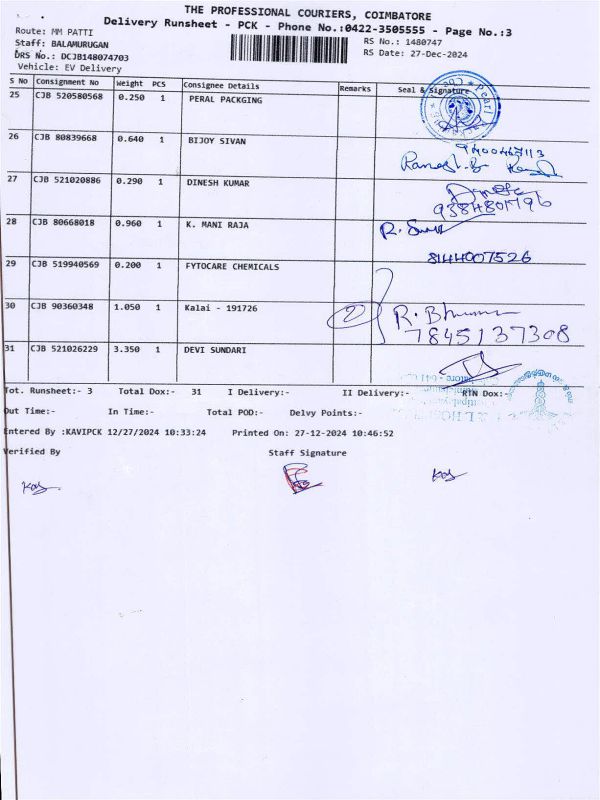 THE PROFESSIONAL COURIERS, COIMBATORE
Delivery Runsheet - PCK - Phone No.:0422-3505555 - Page No.:3
Route: MM PATTI
Staff: BALAMURUGAN
DRS No.: DCJB148074703
Vehicle: EV Delivery
RS No.: 1480747
RS Date: 27-Dec-2024
S No Consignment No Weight PCS Consignee Details Remarks Seal & Signature
25 CJB 520580568 0.250 1 PERAL PACKGING
Pearl
26 CJB 80839668 0.640 1 BIJOY SIVAN
27 CJB 521020886 0.290 1 DINESH KUMAR
9384801796
28 CJB 80668018 0.960 1 K. MANI RAJA
8144007526
29 CJB 519940569 0.200 1 FYTOCARE CHEMICALS
30 CJB 90360348 1.050 1 Kalai - 191726
2
7845137308
31 CJB 521026229 3.350 1 DEVI SUNDARI
Tot. Runsheet:- 3 Total Dox:- 31 I Delivery:- II Delivery:- RTN Dox:-
Out Time:- In Time:- Total POD:- Delvy Points:-
Entered By :KAVIPCK 12/27/2024 10:33:24 Printed On: 27-12-2024 10:46:52
Verified By Staff Signature